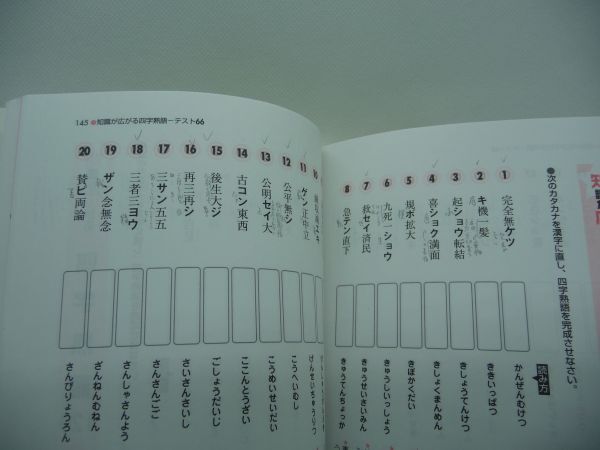 145 ●知識が広がる四字熟語ーテスト66
●次のカタカナを漢字に直し、四字熟語を完成させなさい。
読み方
1
完全無ケツ
かんぜんむけつ
2
キ機一髪
ききいっぱつ
3
起ショウ転結
きしょうてんけつ
4
喜ショク満面
きしょくまんめん
5
規ボ拡大
きぼかくだい
6
九死一ショウ
きゅうしいっしょう
7
救セイ済民
きゅうせいさいみん
8
急テン直下
きゅうてんちょっか
10
ゲン正中立
げんせいちゅうりつ
12
公平無シ
こうへいむし
13
公明セイ大
こうめいせいだい
14
古コン東西
ここんとうざい
15
後生大ジ
ごしょうだいじ
16
再三再シ
さいさんさいし
17
三サン五五
さんさんごご
18
三者三ヨウ
さんしゃさんよう
19
ザン念無念
ざんねんむねん
20
賛ピ両論
さんぴりょうろん